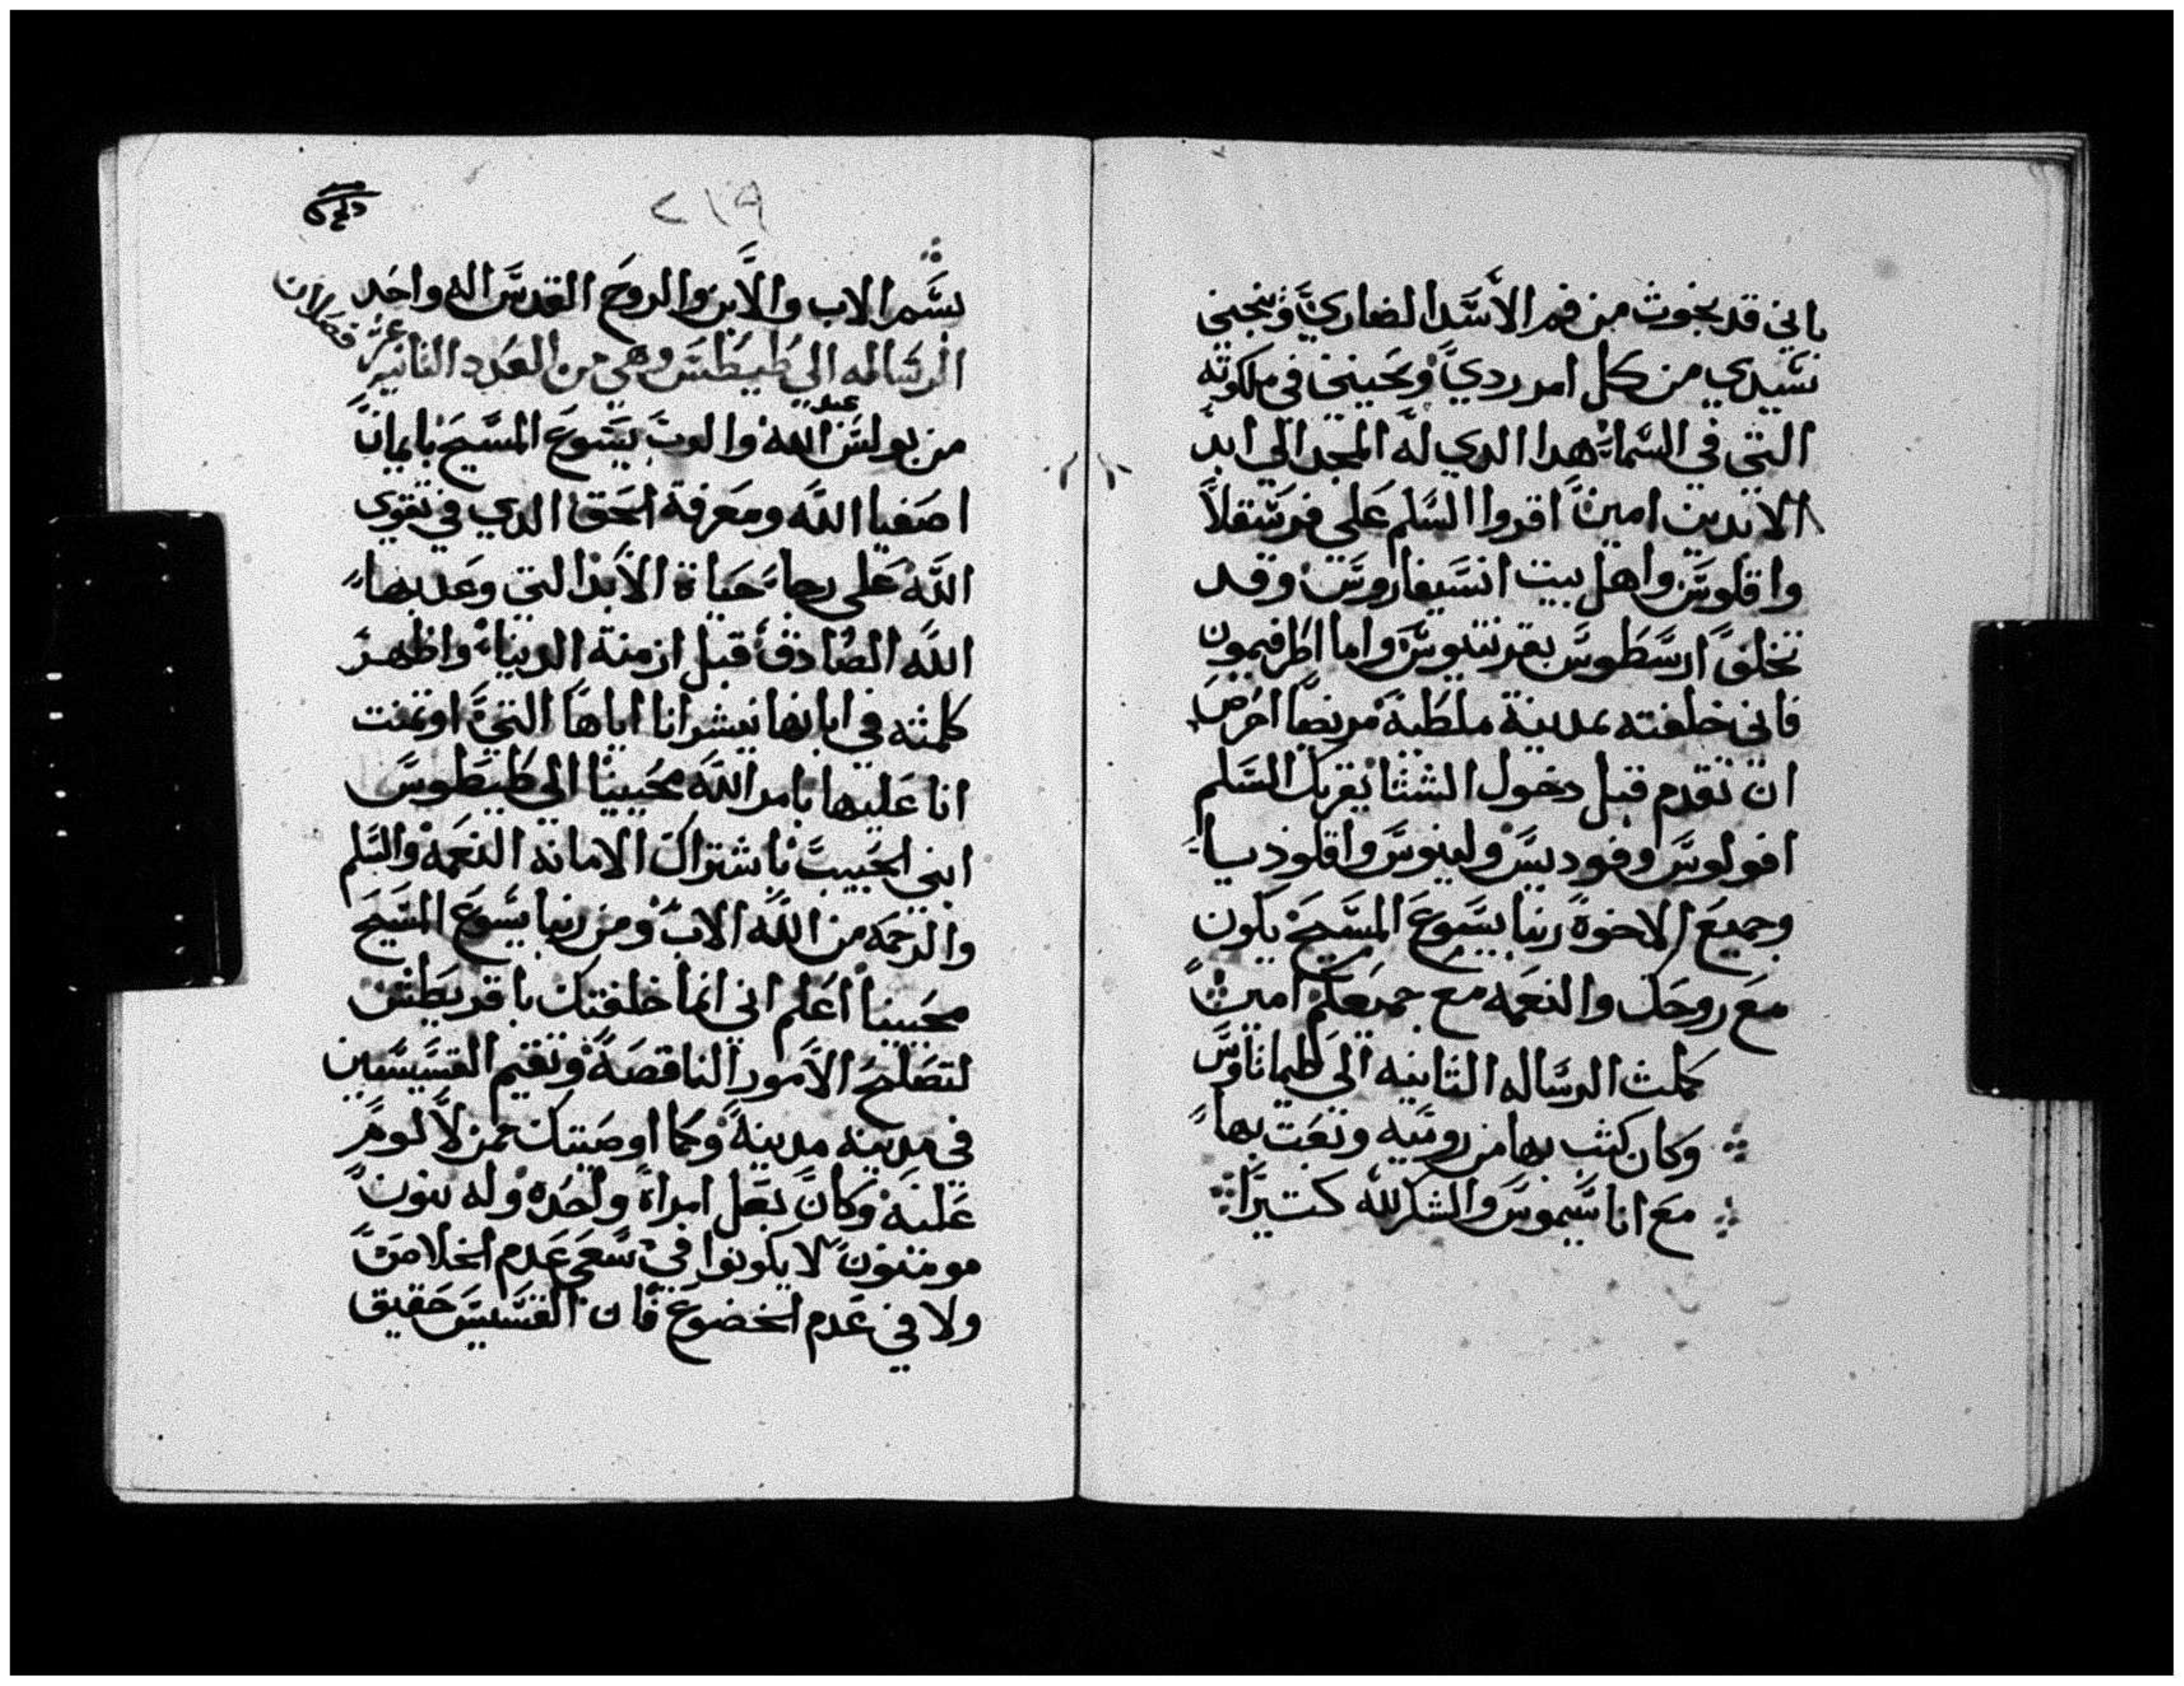 باني قد نجوت من فم الأسد الضاري وينجيني
سيدي من كل امر ردي ويحييني في ملكوته
التي في السماء هدا الدي له المجد الي ابد
الابدين امين اقروا السلم علي فرسقلا
واقلوس واهل بيت انسيفاروس وقد
تخلف ارسطوس بقرنتيوس واما اطرفيمون
فاني خلفته بمدينة ملطية مريضا احرص
ان تقدم قبل دخول الشتا يقريك السلم
افولوس وفوديس ولينوس واقلوديا
وجميع الاخوة ربنا يسوع المسيح يكون
مع روحك والنعمه مع جميعكم امين
كملت الرساله الثانيه الي طيماتاوس
وكان كتب بها من روميه وبعت بها
مع اناسيموس والشكر لله كتيرا
٢١٩
بسم الاب والابن والروح القدس اله واحد
الرساله الي طيطس وهي من العدد الثانيه
عشر فصلان
من بولس عبد الله والرب يسوع المسيح بايمان
اصفيا الله ومعرفة الحق الدي في تقوي
الله علي رجاء حياة الأبد التي وعد بها
الله الصادق قبل ازمنة الدنيا واظهر
كلمته في ابانها ببشرانا اياها التي اوتمنت
انا عليها بامر الله محيينا الي طيطوس
ابني الحبيب باشتراك الامانه النعمه والسلم
والرحمه من الله الاب ومن ربنا يسوع المسيح
محيينا اعلم اني انما خلفتك باقريطش
لتصلح الأمور الناقصة وتقيم القسيسين
في مدينه مدينة وكما اوصيتك ممن لا لوم
عليه وكان بعل امراة واحده وله بنون
مومنون لا يكونوا في سعي عدم الخلاص
ولا في عدم الخضوع فان القسيس حقيق